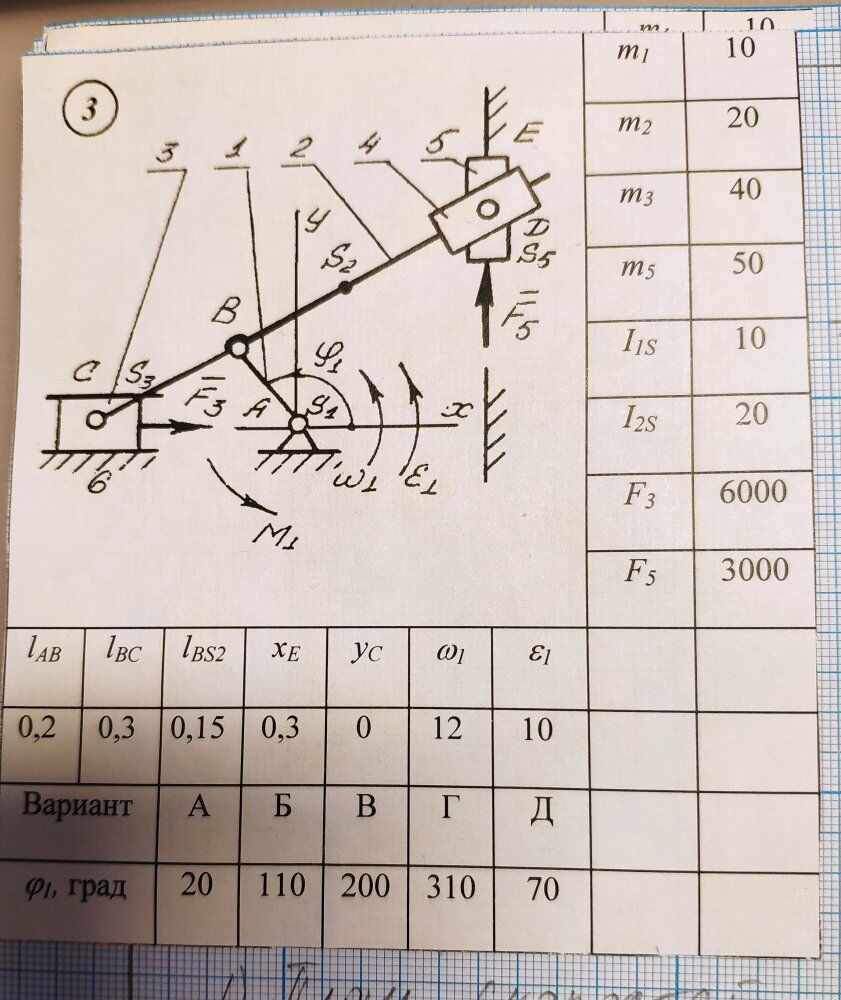 m₁ 10
3
3 1 2 4 5 E
y
S₂
D
S₅
F̅₅
B
φ₁
C S₃ F̅₃ A S₁ x
6 ω₁ ε₁
M₁
m₁ 10
m₂ 20
m₃ 40
m₅ 50
I₁S 10
I₂S 20
F₃ 6000
F₅ 3000
lAB lBC lBS2 xE yC ω₁ ε₁
0,2 0,3 0,15 0,3 0 12 10
Вариант А Б В Г Д
φ₁, град 20 110 200 310 70